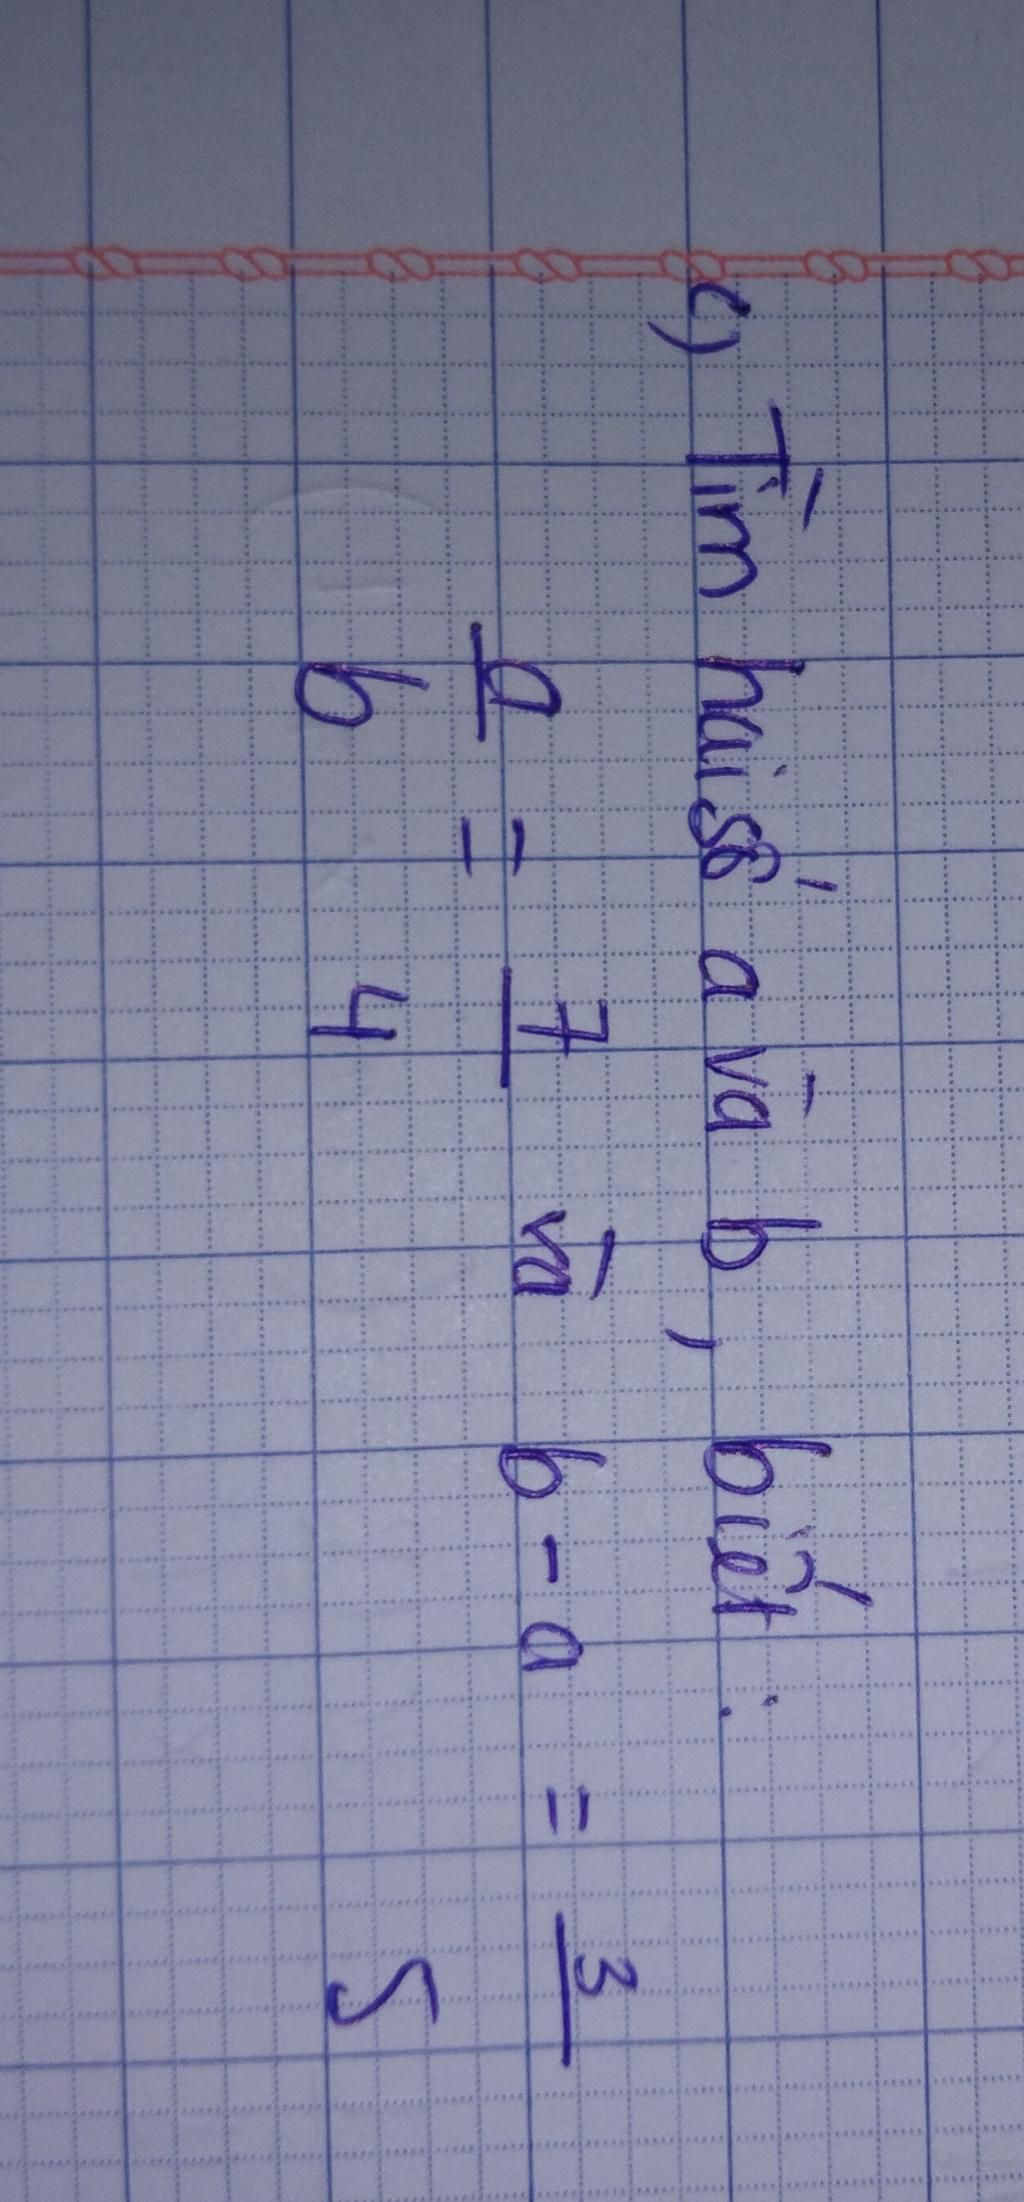 c) Tìm hai số a và b, biết:
a/b = 7/4 và b - a = 3/5